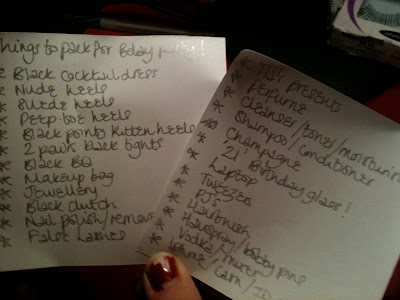 Things to pack for Bday party!
* Black cocktail dress
* Nude heels
* Suede heels
* Peep toe heels
* Black pointy kitten heels
* 2 pairs black tights
* Black
* Makeup bag
* Jewellery
* Black clutch
* Nail polish/remover
* False Lashes
* Presents
* Perfume
* Cleanser/toner/moisturiser
* Shampoo/conditioner
* Champagne
* 21 Birthday glass!
* Laptop
* Tweezers
* PJ's
* Hairbrush
* Hairspray/bobby pins
* Vodka/mixer
* Phone/cam/ID